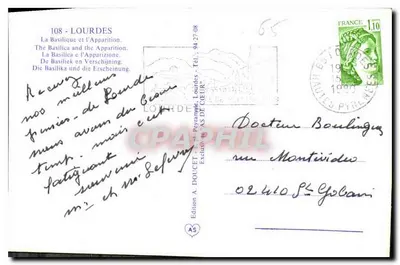 108 - LOURDES
La Basilique et l'Apparition.
The Basilica and the Apparition.
La Basilica e l'Apparizione.
De Basiliek en Verschijning.
Die Basilika und die Erscheinung.
Recevez
nos meilleurs
pensées de Lourdes
nous avons du beau
temps. mais c'est
fatiguant
souvenir
Mr et Me
Edition A. DOUCET
Lourdes - Tél. 94-27-08
"AS DE CŒUR"
AS
LOURDES
65
FRANCE
1,10
PYRENEES
CARTAPHIL
Docteur Boulingue
rue Montévidéo
02410 St Gobain